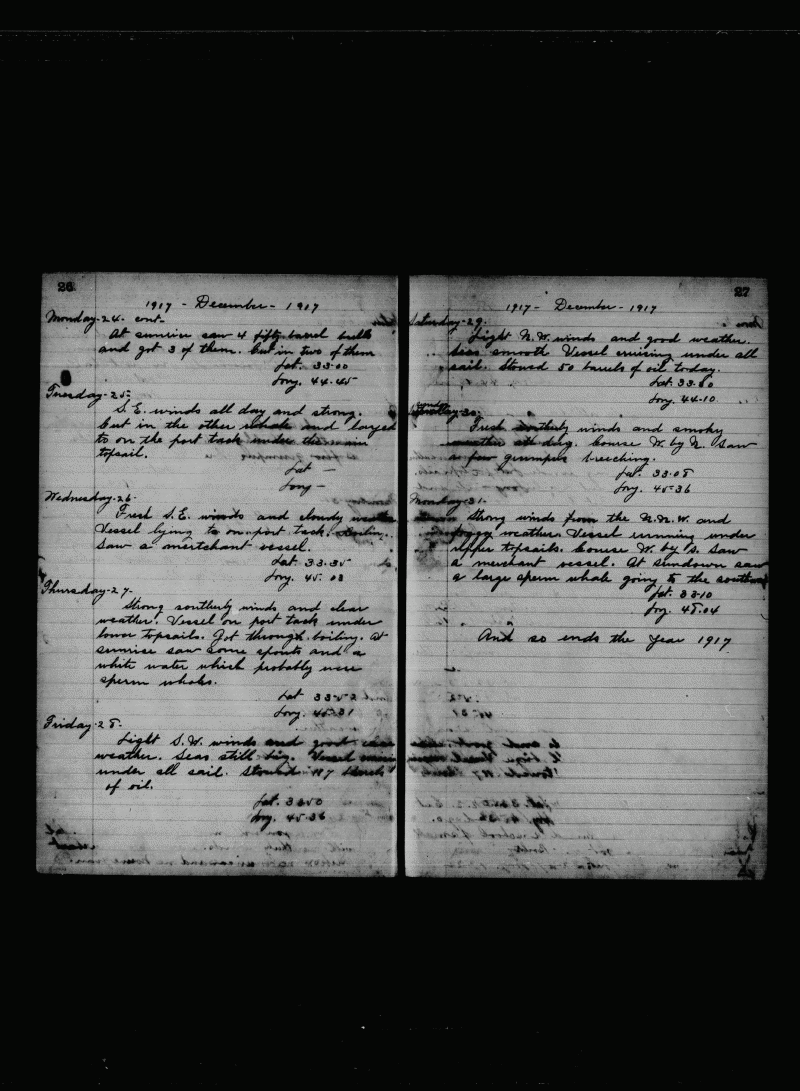 26
1917 - December - 1917
Monday-24. cont-
At sunrise saw 4 fifty-barrel bulls
and got 3 of them. Cut in two of them
Lat. 33-00
Long. 44-45
Tuesday-25-
S.E. winds all day and strong.
Cut in the other whale and layed
to on the port tack under the main
topsail.
Lat -
Long -
Wednesday-26-
Fresh S.E. winds and cloudy weather.
Vessel lying to on port tack. Boiling.
Saw a mertchant vessel.
Lat. 33-35
Long. 45-03
Thursday-27-
Strong southerly winds and clear
weather. Vessel on port tack under
lower topsails. Got through boiling. At
sunrise saw some spouts and a
white water which probably were
sperm whales.
Lat 33-52
Long. 45-31
Friday-28-
Light S.W. winds and good
weather. Seas still big. Vessel
under all sail. Stowed 117 barrels
of oil.
Lat.
Long. 45-36
27
1917 - December - 1917
Saturday-29-
Light N.W. winds and good weather.
Seas smooth Vessel cruising under all
sail. Stowed 50 barrels of oil today.
Lat. 33-
Long. 44-10
Sunday-30-
Fresh southerly winds and smoky
weather all day. Course W. by N. Saw
a few grumpus breeching.
Lat. 33-08
Long. 45-36
Monday-31-
Strong winds from the N.N.W. and
foggy weather. Vessel running under
upper topsails. Course W. by S. Saw
a merchant vessel. At sundown saw
a large sperm whale going to the southward
Lat. 33-10
Long. 48-04
And so ends the year 1917